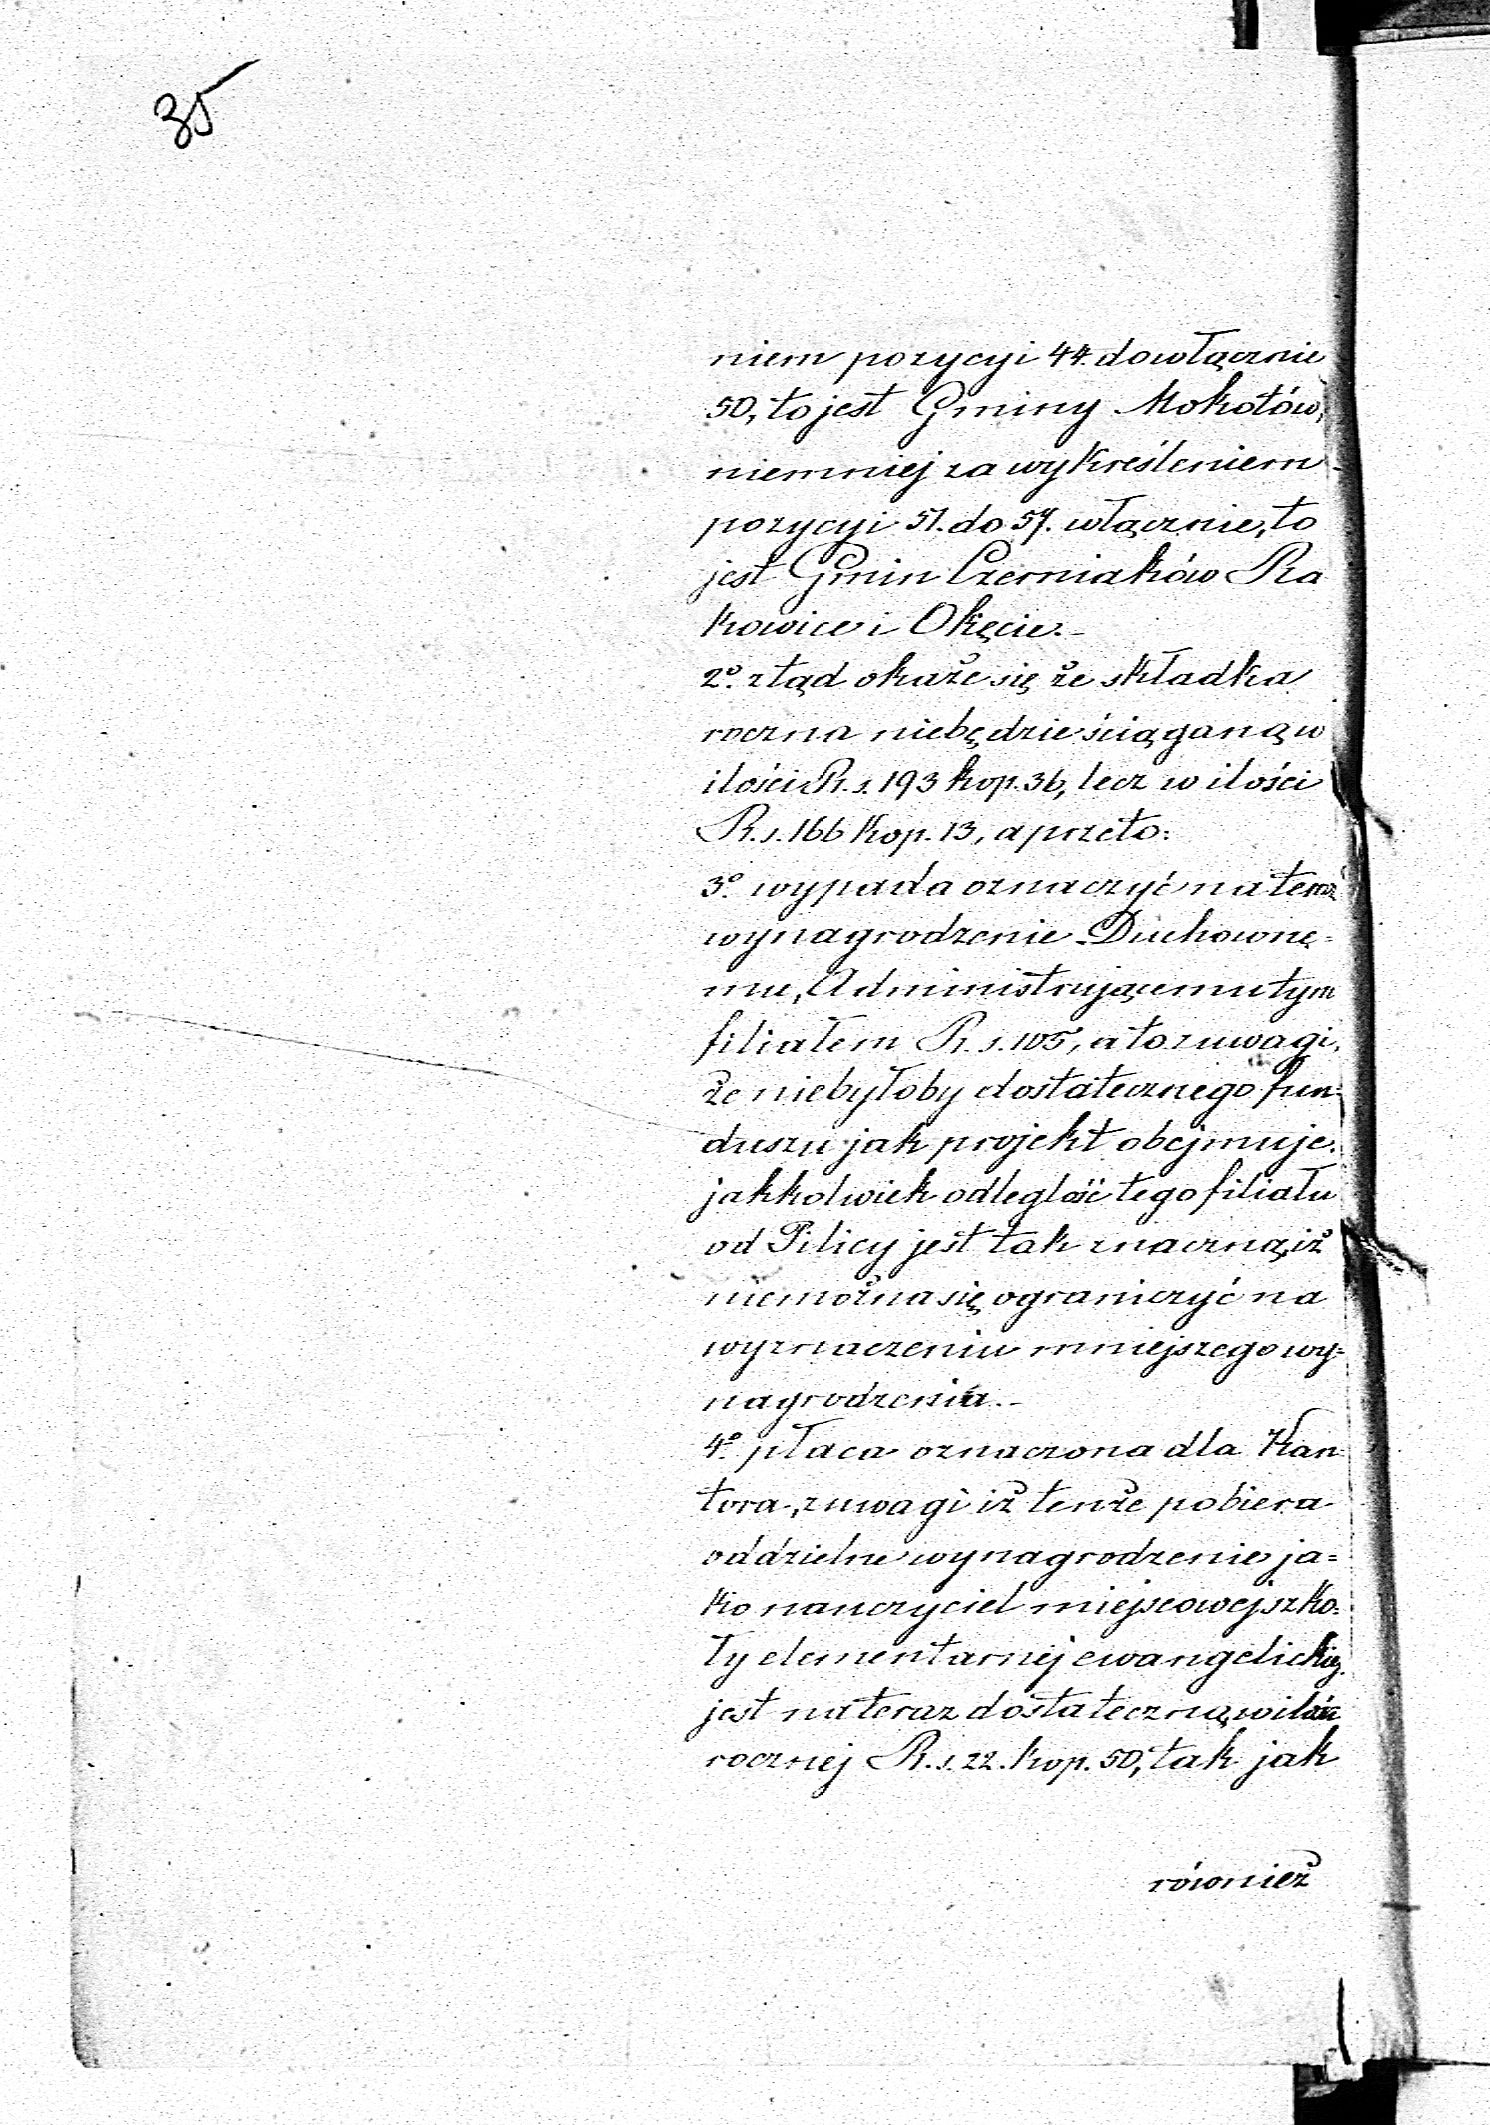 35
niem pozycyi 44. do włącznie
50, to jest Gminy Mokotów,
niemniej za wykreśleniem
pozycyi 51. do 57. włącznie, to
jest Gmin Czerniaków Ra
kowice i Okęcie.-
2º. ztąd okaże się że składka
roczna niebędzie ściąganą w
ilości R. s. 193 kop. 36, lecz w ilości
R. s. 166 kop. 13, a przeto:
3º. wypada oznaczyć na teraz
wynagrodzenie Duchowne=
mu, Administrującemu tym
filiałem R. s. 105, a to z uwagi,
że niebyłoby dostatecznego fun=
duszu jak projekt obejmuje.
jakkolwiek odległość tego filiału
od Pilicy jest tak znaczną, iż
niemożna się ograniczyć na
wyznaczeniu mniejszego wy=
nagrodzenia.-
4º. płaca oznaczona dla Kan=
tora, z uwagi iż tenże pobiera
oddzielne wynagrodzenie ja=
ko nauczyciel miejscowej szko=
ły elementarnej ewangelickiej
jest na teraz dostateczną w ilości
rocznej R. s. 22. kop. 50, tak jak
również